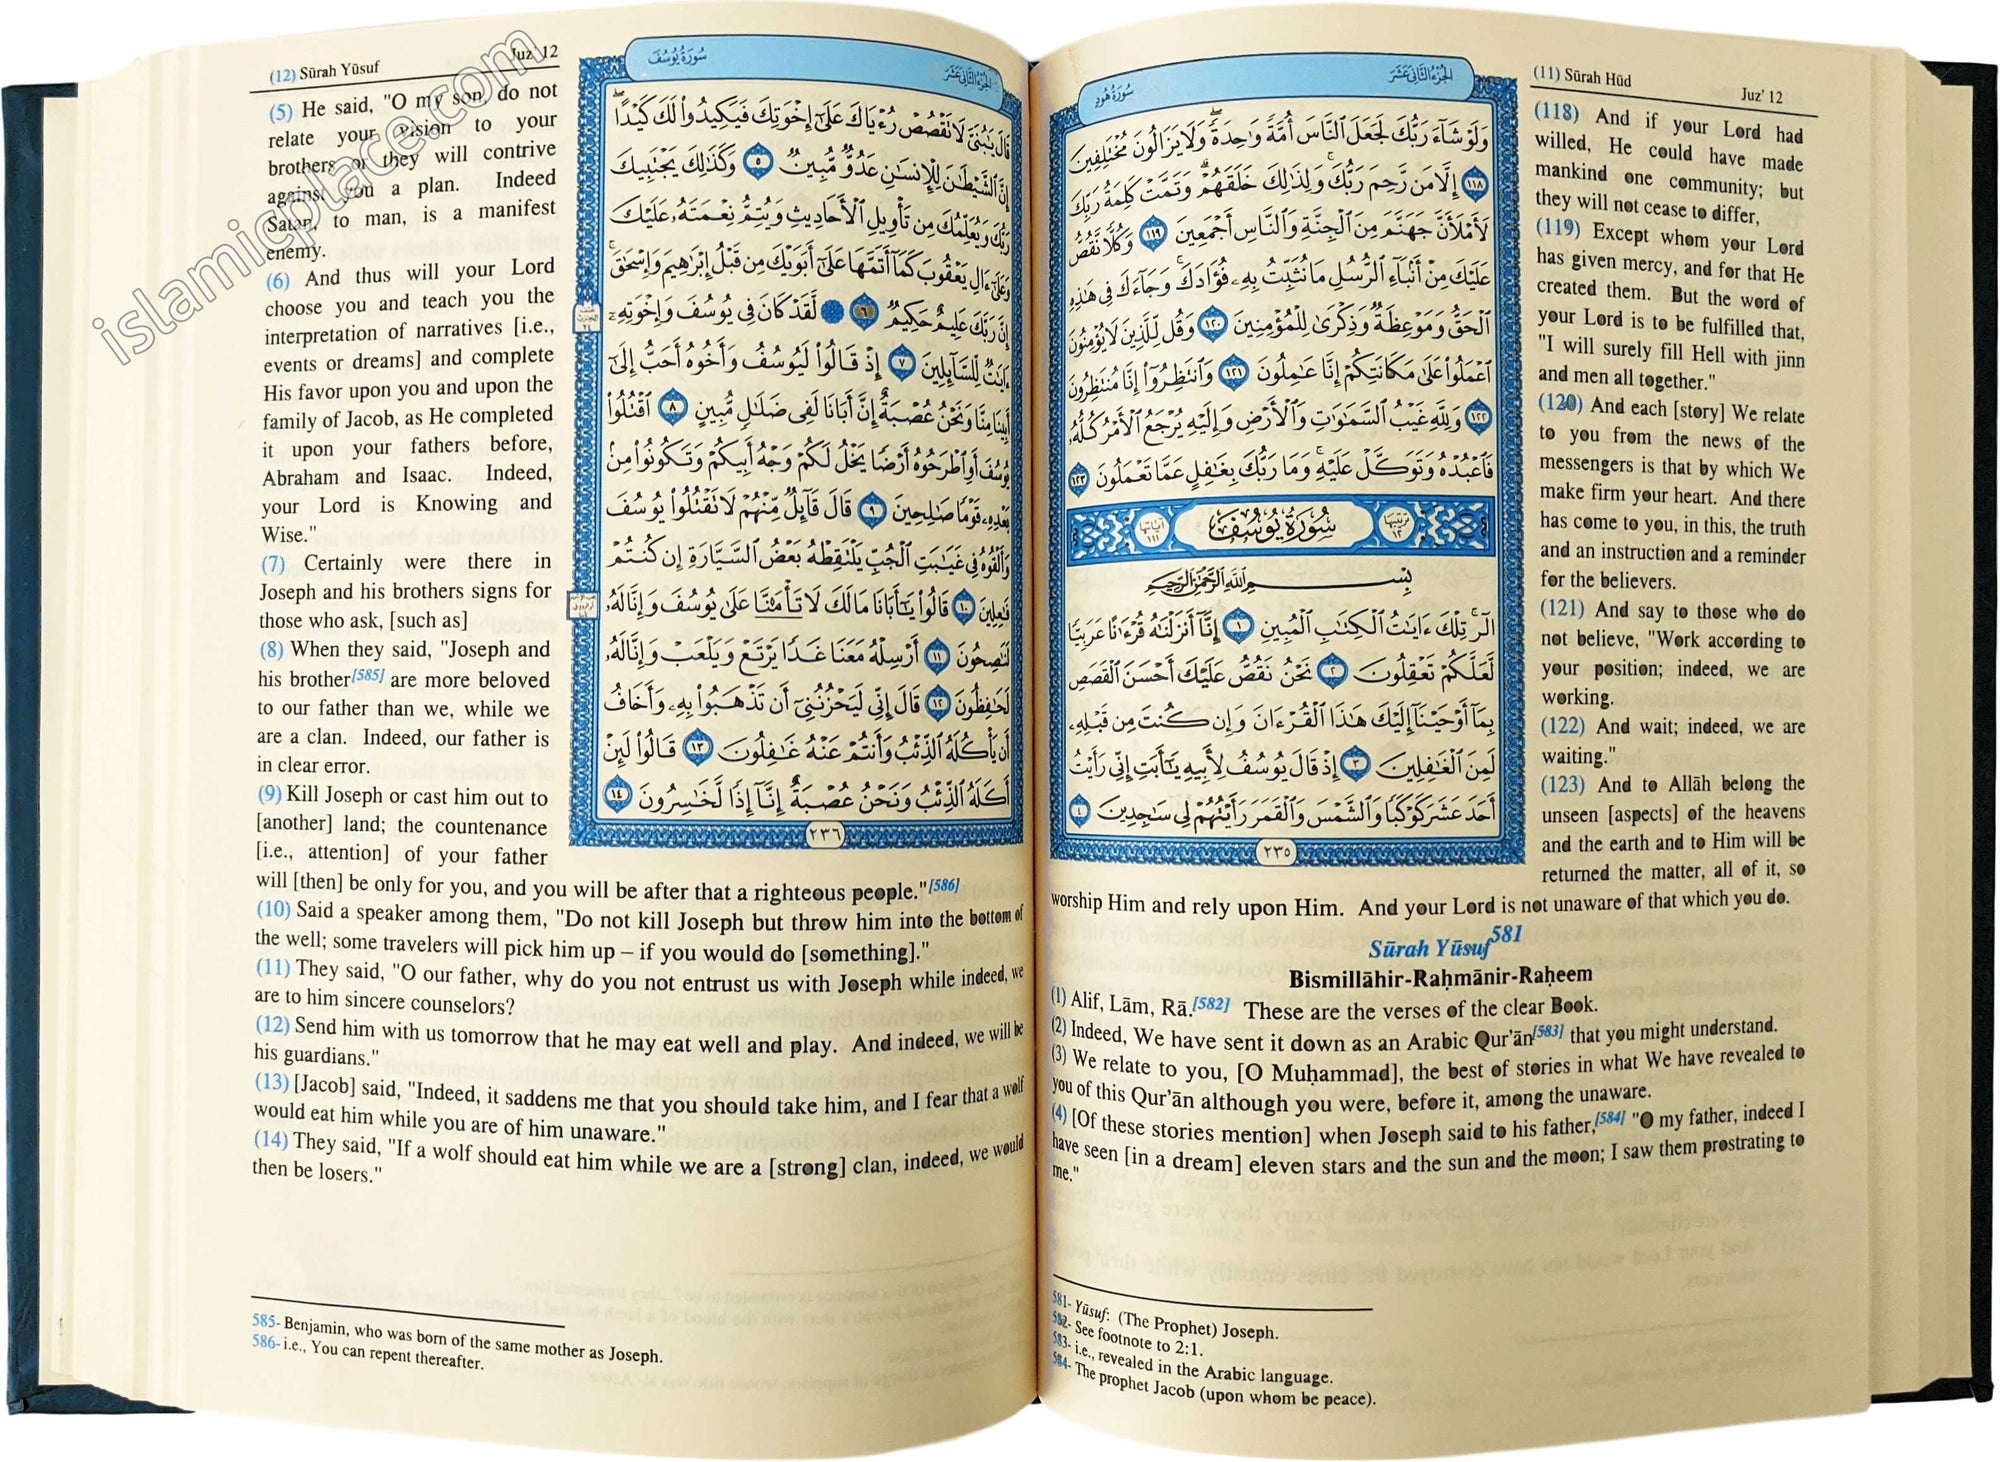 (11) Sūrah Hūd
Juz' 12
سُورَةُ هُودٍ
الجُزْءُ الثَّانِيَ عَشَرَ
وَلَوْ شَآءَ رَبُّكَ لَجَعَلَ ٱلنَّاسَ أُمَّةً وَٰحِدَةً ۖ وَلَا يَزَالُونَ مُخْتَلِفِينَ
١١٨ إِلَّا مَن رَّحِمَ رَبُّكَ ۚ وَلِذَٰلِكَ خَلَقَهُمْ ۗ وَتَمَّتْ كَلِمَةُ رَبِّكَ
لَأَمْلَأَنَّ جَهَنَّمَ مِنَ ٱلْجِنَّةِ وَٱلنَّاسِ أَجْمَعِينَ ١١٩ وَكُلًّا نَّقُصُّ
عَلَيْكَ مِنْ أَنۢبَآءِ ٱلرُّسُلِ مَا نُثَبِّتُ بِهِۦ فُؤَادَكَ ۚ وَجَآءَكَ فِى هَٰذِهِ
ٱلْحَقُّ وَمَوْعِظَةٌ وَذِكْرَىٰ لِلْمُؤْمِنِينَ ١٢٠ وَقُل لِّلَّذِينَ لَا يُؤْمِنُونَ
ٱعْمَلُوا۟ عَلَىٰ مَكَانَتِكُمْ إِنَّا عَٰمِلُونَ ١٢١ وَٱنتَظِرُوٓا۟ إِنَّا مُنتَظِرُونَ
١٢٢ وَلِلَّهِ غَيْبُ ٱلسَّمَٰوَٰتِ وَٱلْأَرْضِ وَإِلَيْهِ يُرْجَعُ ٱلْأَمْرُ كُلُّهُۥ
فَٱعْبُدْهُ وَتَوَكَّلْ عَلَيْهِ ۚ وَمَا رَبُّكَ بِغَٰفِلٍ عَمَّا تَعْمَلُونَ ١٢٣
ترتيبها ١٢ سُورَةُ يُوسُفَ آياتها ١١١
بِسْمِ ٱللَّهِ ٱلرَّحْمَٰنِ ٱلرَّحِيمِ
الٓر ۚ تِلْكَ ءَايَٰتُ ٱلْكِتَٰبِ ٱلْمُبِينِ ١ إِنَّآ أَنزَلْنَٰهُ قُرْءَٰنًا عَرَبِيًّا
لَّعَلَّكُمْ تَعْقِلُونَ ٢ نَحْنُ نَقُصُّ عَلَيْكَ أَحْسَنَ ٱلْقَصَصِ
بِمَآ أَوْحَيْنَآ إِلَيْكَ هَٰذَا ٱلْقُرْءَانَ وَإِن كُنتَ مِن قَبْلِهِۦ
لَمِنَ ٱلْغَٰفِلِينَ ٣ إِذْ قَالَ يُوسُفُ لِأَبِيهِ يَٰٓأَبَتِ إِنِّى رَأَيْتُ
أَحَدَ عَشَرَ كَوْكَبًا وَٱلشَّمْسَ وَٱلْقَمَرَ رَأَيْتُهُمْ لِى سَٰجِدِينَ ٤
٢٣٥
(118) And if your Lord had
willed, He could have made
mankind one community; but
they will not cease to differ,
(119) Except whom your Lord
has given mercy, and for that He
created them. But the word of
your Lord is to be fulfilled that,
"I will surely fill Hell with jinn
and men all together."
(120) And each [story] We relate
to you from the news of the
messengers is that by which We
make firm your heart. And there
has come to you, in this, the truth
and an instruction and a reminder
for the believers.
(121) And say to those who do
not believe, "Work according to
your position; indeed, we are
working.
(122) And wait; indeed, we are
waiting."
(123) And to Allāh belong the
unseen [aspects] of the heavens
and the earth and to Him will be
returned the matter, all of it, so
worship Him and rely upon Him. And your Lord is not unaware of that which you do.
Sūrah Yūsuf581
Bismillāhir-Raḥmānir-Raḥeem
(1) Alif, Lām, Rā.[582] These are the verses of the clear Book.
(2) Indeed, We have sent it down as an Arabic Qur'ān[583] that you might understand.
(3) We relate to you, [O Muḥammad], the best of stories in what We have revealed to
you of this Qur'ān although you were, before it, among the unaware.
(4) [Of these stories mention] when Joseph said to his father,[584] "O my father, indeed I
have seen [in a dream] eleven stars and the sun and the moon; I saw them prostrating to
me."
581- Yūsuf: (The Prophet) Joseph.
582- See footnote to 2:1.
583- i.e., revealed in the Arabic language.
584- The prophet Jacob (upon whom be peace).
(12) Sūrah Yūsuf
Juz' 12
سُورَةُ يُوسُفَ
الجُزْءُ الثَّانِيَ عَشَرَ
قَالَ يَٰبُنَىَّ لَا تَقْصُصْ رُءْيَاكَ عَلَىٰٓ إِخْوَتِكَ فَيَكِيدُوا۟ لَكَ كَيْدًا ۖ
إِنَّ ٱلشَّيْطَٰنَ لِلْإِنسَٰنِ عَدُوٌّ مُّبِينٌ ٥ وَكَذَٰلِكَ يَجْتَبِيكَ
رَبُّكَ وَيُعَلِّمُكَ مِن تَأْوِيلِ ٱلْأَحَادِيثِ وَيُتِمُّ نِعْمَتَهُۥ عَلَيْكَ
وَعَلَىٰٓ ءَالِ يَعْقُوبَ كَمَآ أَتَمَّهَا عَلَىٰٓ أَبَوَيْكَ مِن قَبْلُ إِبْرَٰهِيمَ وَإِسْحَٰقَ ۚ
إِنَّ رَبَّكَ عَلِيمٌ حَكِيمٌ ٦ لَّقَدْ كَانَ فِى يُوسُفَ وَإِخْوَتِهِۦٓ
ءَايَٰتٌ لِّلسَّآئِلِينَ ٧ إِذْ قَالُوا۟ لَيُوسُفُ وَأَخُوهُ أَحَبُّ إِلَىٰٓ
أَبِينَا مِنَّا وَنَحْنُ عُصْبَةٌ إِنَّ أَبَانَا لَفِى ضَلَٰلٍ مُّبِينٍ ٨ ٱقْتُلُوا۟
يُوسُفَ أَوِ ٱطْرَحُوهُ أَرْضًا يَخْلُ لَكُمْ وَجْهُ أَبِيكُمْ وَتَكُونُوا۟ مِنۢ
بَعْدِهِۦ قَوْمًا صَٰلِحِينَ ٩ قَالَ قَآئِلٌ مِّنْهُمْ لَا تَقْتُلُوا۟ يُوسُفَ
وَأَلْقُوهُ فِى غَيَٰبَتِ ٱلْجُبِّ يَلْتَقِطْهُ بَعْضُ ٱلسَّيَّارَةِ إِن كُنتُمْ
فَٰعِلِينَ ١٠ قَالُوا۟ يَٰٓأَبَانَا مَا لَكَ لَا تَأْمَ۫نَّا عَلَىٰ يُوسُفَ وَإِنَّا لَهُۥ
لَنَٰصِحُونَ ١١ أَرْسِلْهُ مَعَنَا غَدًا يَرْتَعْ وَيَلْعَبْ وَإِنَّا لَهُۥ
لَحَٰفِظُونَ ١٢ قَالَ إِنِّى لَيَحْزُنُنِىٓ أَن تَذْهَبُوا۟ بِهِۦ وَأَخَافُ
أَن يَأْكُلَهُ ٱلذِّئْبُ وَأَنتُمْ عَنْهُ غَٰفِلُونَ ١٣ قَالُوا۟ لَئِنْ
أَكَلَهُ ٱلذِّئْبُ وَنَحْنُ عُصْبَةٌ إِنَّآ إِذًا لَّخَٰسِرُونَ ١٤
٢٣٦
(5) He said, "O my son, do not
relate your vision to your
brothers or they will contrive
against you a plan. Indeed
Satan, to man, is a manifest
enemy.
(6) And thus will your Lord
choose you and teach you the
interpretation of narratives [i.e.,
events or dreams] and complete
His favor upon you and upon the
family of Jacob, as He completed
it upon your fathers before,
Abraham and Isaac. Indeed,
your Lord is Knowing and
Wise."
(7) Certainly were there in
Joseph and his brothers signs for
those who ask, [such as]
(8) When they said, "Joseph and
his brother[585] are more beloved
to our father than we, while we
are a clan. Indeed, our father is
in clear error.
(9) Kill Joseph or cast him out to
[another] land; the countenance
[i.e., attention] of your father
will [then] be only for you, and you will be after that a righteous people."[586]
(10) Said a speaker among them, "Do not kill Joseph but throw him into the bottom of
the well; some travelers will pick him up – if you would do [something]."
(11) They said, "O our father, why do you not entrust us with Joseph while indeed, we
are to him sincere counselors?
(12) Send him with us tomorrow that he may eat well and play. And indeed, we will be
his guardians."
(13) [Jacob] said, "Indeed, it saddens me that you should take him, and I fear that a wolf
would eat him while you are of him unaware."
(14) They said, "If a wolf should eat him while we are a [strong] clan, indeed, we would
then be losers."
585- Benjamin, who was born of the same mother as Joseph.
586- i.e., You can repent thereafter.
islamicplace.com